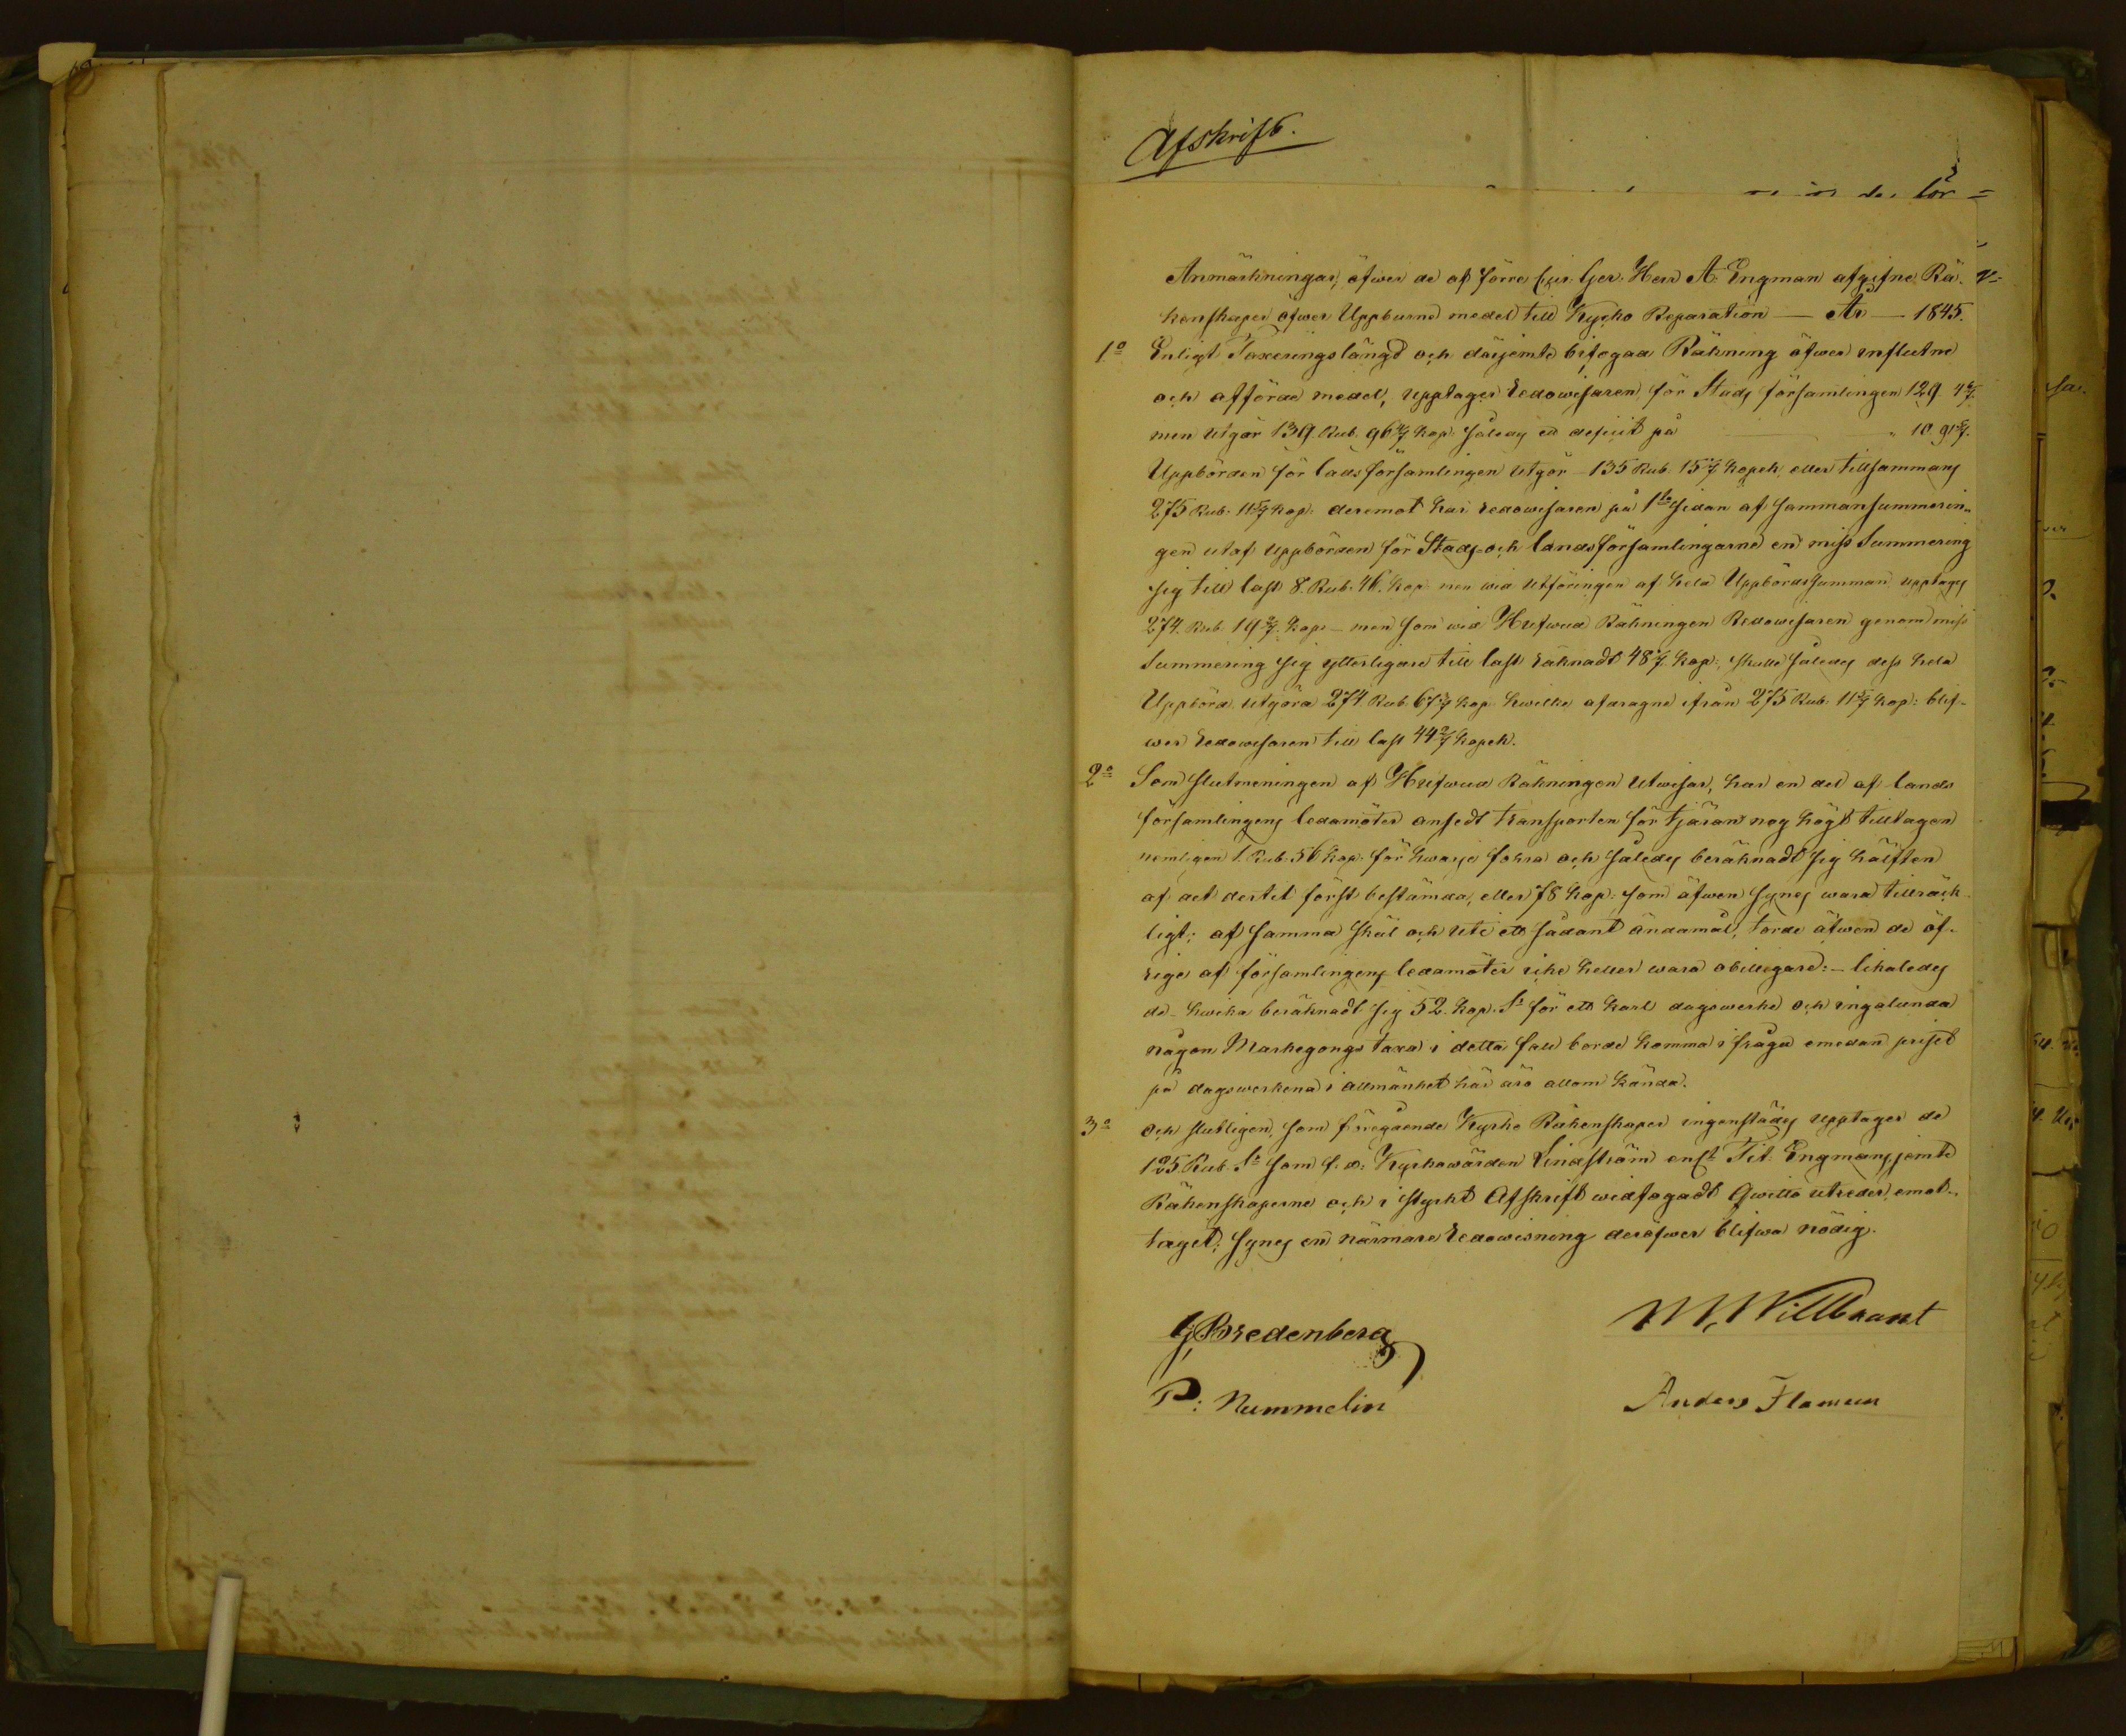 Afskrift.
Anmärkningar, öfwer de af förre Herr A. Engman afgifne Rä-
kenskaper öfwer Uppburne medel till Kyrko Reparation — År — 1845.
1o Enligt Taxeringslängd och därjemte bifogad Räkning öfwer influtne
och afförde medel, upptager Redowisaren för Stads församlingen 129. 4 6/7.
men utgör 139. Rub. 96 4/7 Kop. således en deficit på " 10. 91 5/7.
Uppbörden för landsförsamlingen utgör — 135 Rub. 15 1/7 Kopek, eller tillsammans
275 Rub. 11 5/7 Kop: deremot har redowisaren på 1sta sidan af sammansummerin-
gen utaf uppbörden för Stads och landsförsamlingarne en miss Summering
sig till last 8. Rub. 46. Kop. men wid utföringen af hela Uppbördssumman upptages
274. Rub. 19 2/7. Kop. — men som wid Hufwud Räkningen Redowisaren genom miss
Summering sig ytterligare till last räknadt 48 1/7. Kop:, skulle således dess hela
Uppbörd utgöra 274. Rub. 67 3/7 Kop. hwilka afdragne ifrån 275 Rub. 11 5/7 Kop: blif-
wer redowisaren till last 44 2/7 Kopek.
2o Som slutmeningen af Hufwud Räkningen utwisar, har en del af lands
församlingens ledamöter ansedt transporten för tjäran nog högt tilltagen
nemligen 1. Rub. 56 Kop. för hwarje fohra och således beräknadt sig hälften
af det dertil först bestämda, eller 78 Kop. som äfwen synes wara tillräck-
ligt; af samma skäl och uti ett sådant ändamål, torde äfwen de öf-
rige af församlingens ledamöter icke heller wara obilligare: — likaledes
de hwilka beräknadt sig 52. Kop. Sr för ett karl dagswerke och ingalunda
någon Markegångs taxa i detta fall borde komma i fråga emedan priset
på dagswerkena i allmänhet här äro allom kända.
3o och slutligen, som föregående Kyrko Räkenskaper ingenstädes upptager de
125. Rub. Sr som f. d. Kyrkowärden Lindström enligt Tit. Engmans jemte
Räkenskaperne och i styrkt Afskrift widfogadt Qwitto utreder, emot-
taget; synes en närmare Redowisning deröfwer blifwa nödig.
G. Bredenberg
M. Willbrant
P: Nummelin
Anders Flomun